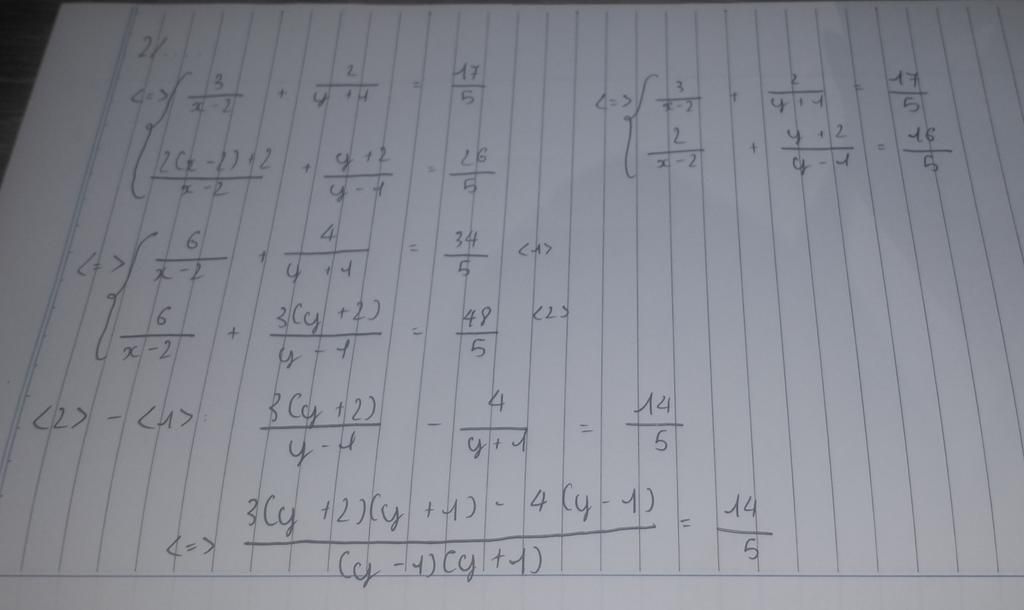 2/...
<=> { 3/(x-2) + 2/(y+1) = 17/5
(2(x-2)+2)/(x-2) + (y+2)/(y-1) = 26/5
<=> { 3/(x-2) + 2/(y+1) = 17/5
2/(x-2) + (y+2)/(y-1) = 16/5
<=> { 6/(x-2) + 4/(y+1) = 34/5 <1>
6/(x-2) + 3(y+2)/(y-1) = 48/5 <2>
<2> - <1>: 3(y+2)/(y-1) - 4/(y+1) = 14/5
<=> (3(y+2)(y+1) - 4(y-1))/((y-1)(y+1)) = 14/5